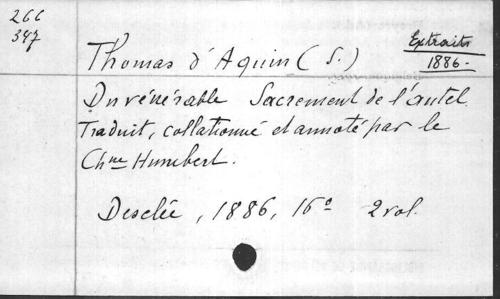 266
347
Extraits
1886.-
Thomas d'Aquin (S.)
Du vénérable Sacrement de l'autel.
Traduit, collationné et annoté par le
Chne Humbert.
Desclée, 1886, 16º 2 vol.